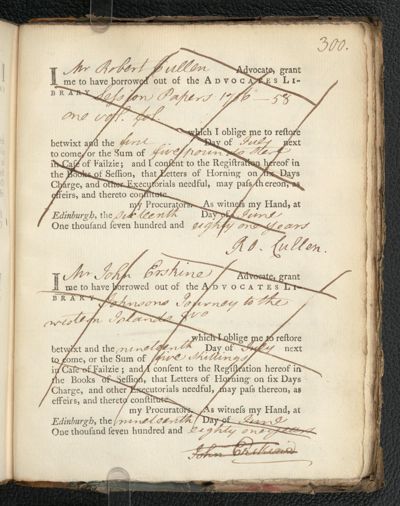 300.
I Mr Robert Cullen Advocate, grant
me to have borrowed out of the ADVOCATES LI-
BRARY Session Papers 1756-58
one vol: fol.
which I oblige me to restore
betwixt and the Day of July next
to come, or the Sum of five pounds
in Case of Failzie; and I consent to the Registration hereof in
the Books of Session, that Letters of Horning on six Days
Charge, and other Executorials needful, may pass thereon, as
effeirs, and thereto constitute
my Procurators. As witness my Hand, at
Edinburgh, the sixteenth Day of June
One thousand seven hundred and eighty one years
Ro. Cullen.
I Mr John Erskine Advocate, grant
me to have borrowed out of the ADVOCATES LI-
BRARY Johnsons Journey to the
western Islands 8vo
which I oblige me to restore
betwixt and the nineteenth Day of July next
to come, or the Sum of five shillings
in Case of Failzie; and I consent to the Registration hereof in
the Books of Session, that Letters of Horning on six Days
Charge, and other Executorials needful, may pass thereon, as
effeirs, and thereto constitute
my Procurators. As witness my Hand, at
Edinburgh, the nineteenth Day of June
One thousand seven hundred and eighty one years
John Erskine